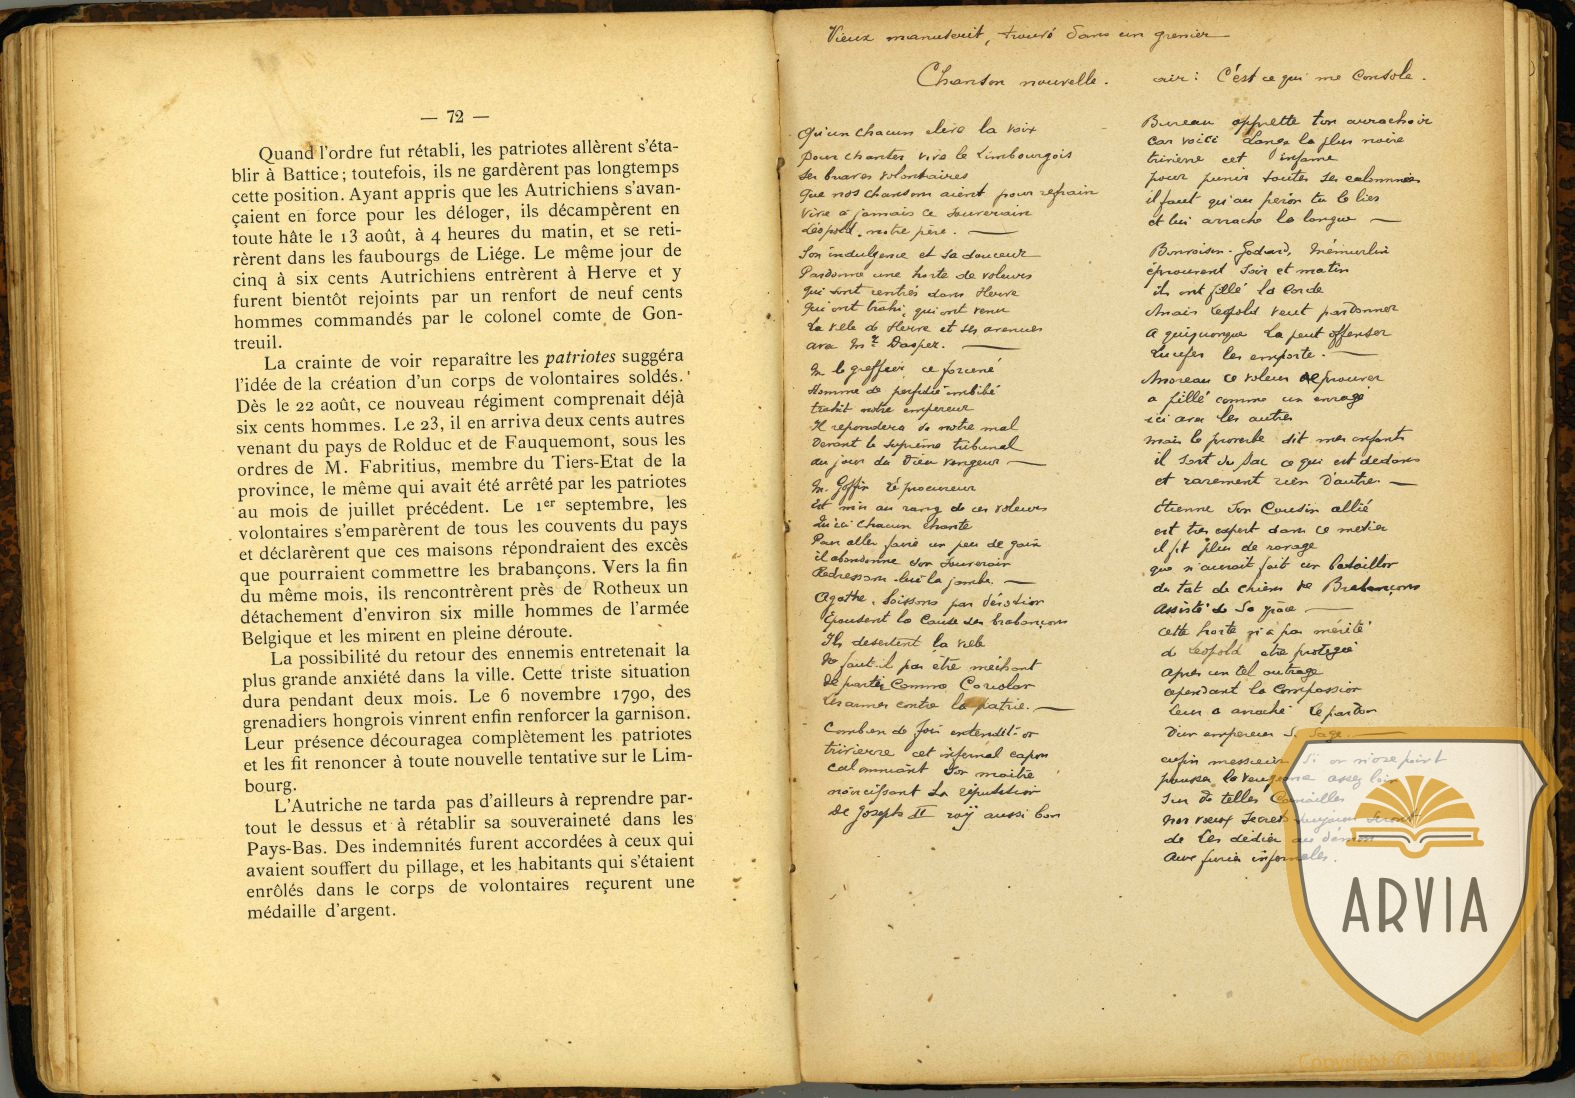 — 72 —
Quand l'ordre fut rétabli, les patriotes allèrent s'éta-
blir à Battice; toutefois, ils ne gardèrent pas longtemps
cette position. Ayant appris que les Autrichiens s'avan-
çaient en force pour les déloger, ils décampèrent en
toute hâte le 13 août, à 4 heures du matin, et se reti-
rèrent dans les faubourgs de Liége. Le même jour de
cinq à six cents Autrichiens entrèrent à Herve et y
furent bientôt rejoints par un renfort de neuf cents
hommes commandés par le colonel comte de Gon-
treuil.
La crainte de voir reparaître les patriotes suggéra
l'idée de la création d'un corps de volontaires soldés.
Dès le 22 août, ce nouveau régiment comprenait déjà
six cents hommes. Le 23, il en arriva deux cents autres
venant du pays de Rolduc et de Fauquemont, sous les
ordres de M. Fabritius, membre du Tiers-Etat de la
province, le même qui avait été arrêté par les patriotes
au mois de juillet précédent. Le 1er septembre, les
volontaires s'emparèrent de tous les couvents du pays
et déclarèrent que ces maisons répondraient des excès
que pourraient commettre les brabançons. Vers la fin
du même mois, ils rencontrèrent près de Rotheux un
détachement d'environ six mille hommes de l'armée
Belgique et les mirent en pleine déroute.
La possibilité du retour des ennemis entretenait la
plus grande anxiété dans la ville. Cette triste situation
dura pendant deux mois. Le 6 novembre 1790, des
grenadiers hongrois vinrent enfin renforcer la garnison.
Leur présence découragea complètement les patriotes
et les fit renoncer à toute nouvelle tentative sur le Lim-
bourg.
L'Autriche ne tarda pas d'ailleurs à reprendre par-
tout le dessus et à rétablir sa souveraineté dans les
Pays-Bas. Des indemnités furent accordées à ceux qui
avaient souffert du pillage, et les habitants qui s'étaient
enrôlés dans le corps de volontaires reçurent une
médaille d'argent.
Vieux manuscrit, trouvé dans un grenier
Chanson nouvelle. air: C'est ce qui me console.
Qu'un chacun elève la voix
pour chanter vive le Limbourgois
ses braves volontaires
que nos chansons aient pour refrain
Vive à jamais ce souverain
Léopold, notre père. —
Son indulgence et sa douceur
Pardonne une horte de voleurs
qui sont rentrés dans Herve
qui ont trahi, qui ont venu
la ville de Herve et ses avenues
avec Mr Dasper. —
M le greffier, ce forcené
Homme de perfidie imbibé
trahit notre empereur
Il repondera de notre mal
Devant le suprème tribunal
au jour du Dieu vengeur —
M. Goffin le procureur
Est mis au rang de ces voleurs
Qu'ici chacun chante
Pour aller faire un peu de gain
il abandonne son souverain
Redressons-lui la jambe. —
Agathe, Soissons par dévotion
Epousent la cause des brabançons
Ils desertent la ville
Ne faut-il pas être méchant
De partir comme Coriolan
Les armes contre la patrie. —
Combien de fois entendit-on
trivierre cet infernal capon
calomniant son maître
noircissant sa réputation
De Joseph II roÿ aussi bon
Bureau apprette ton arrachoir
car voici l'ame la plus noire
trivierre cet infame
pour punir toutes ses calomnies
il faut qu'au peron tu le lies
et lui arrache la langue —
Bonvoisin-Godard, Mémurlin
éprouvent soir et matin
ils ont pillé la Corde
Mais Léopold veut pardonner
A quiquonque la peut offenser
Lucifer les emporte. —
Moreau ce voleur
a pillé comme un enragé
ici avec les autres
mais le proverbe dit mes enfants
il sort du sac ce qui est dedans
et rarement rien d'autre. —
Etienne son Cousin allié
est tres expert dans ce metier
il fit plus de ravage
que n'auroit fait un bataillon
du tat de chiens de Brabançons
Assisté de sa grâce —
cette horte n'a pas mérité
de Léopold etre protégée
après un tel outrage
cependant la compassion
leur a arraché le pardon
D'un empereur si sage. —
enfin messieurs si on n'ose point
pousser la vengeance assez loin
Sur de telles Canailles
nos vœux secrets toujours seront
de les dédier au démon
aux furies infernales.
ARVIA